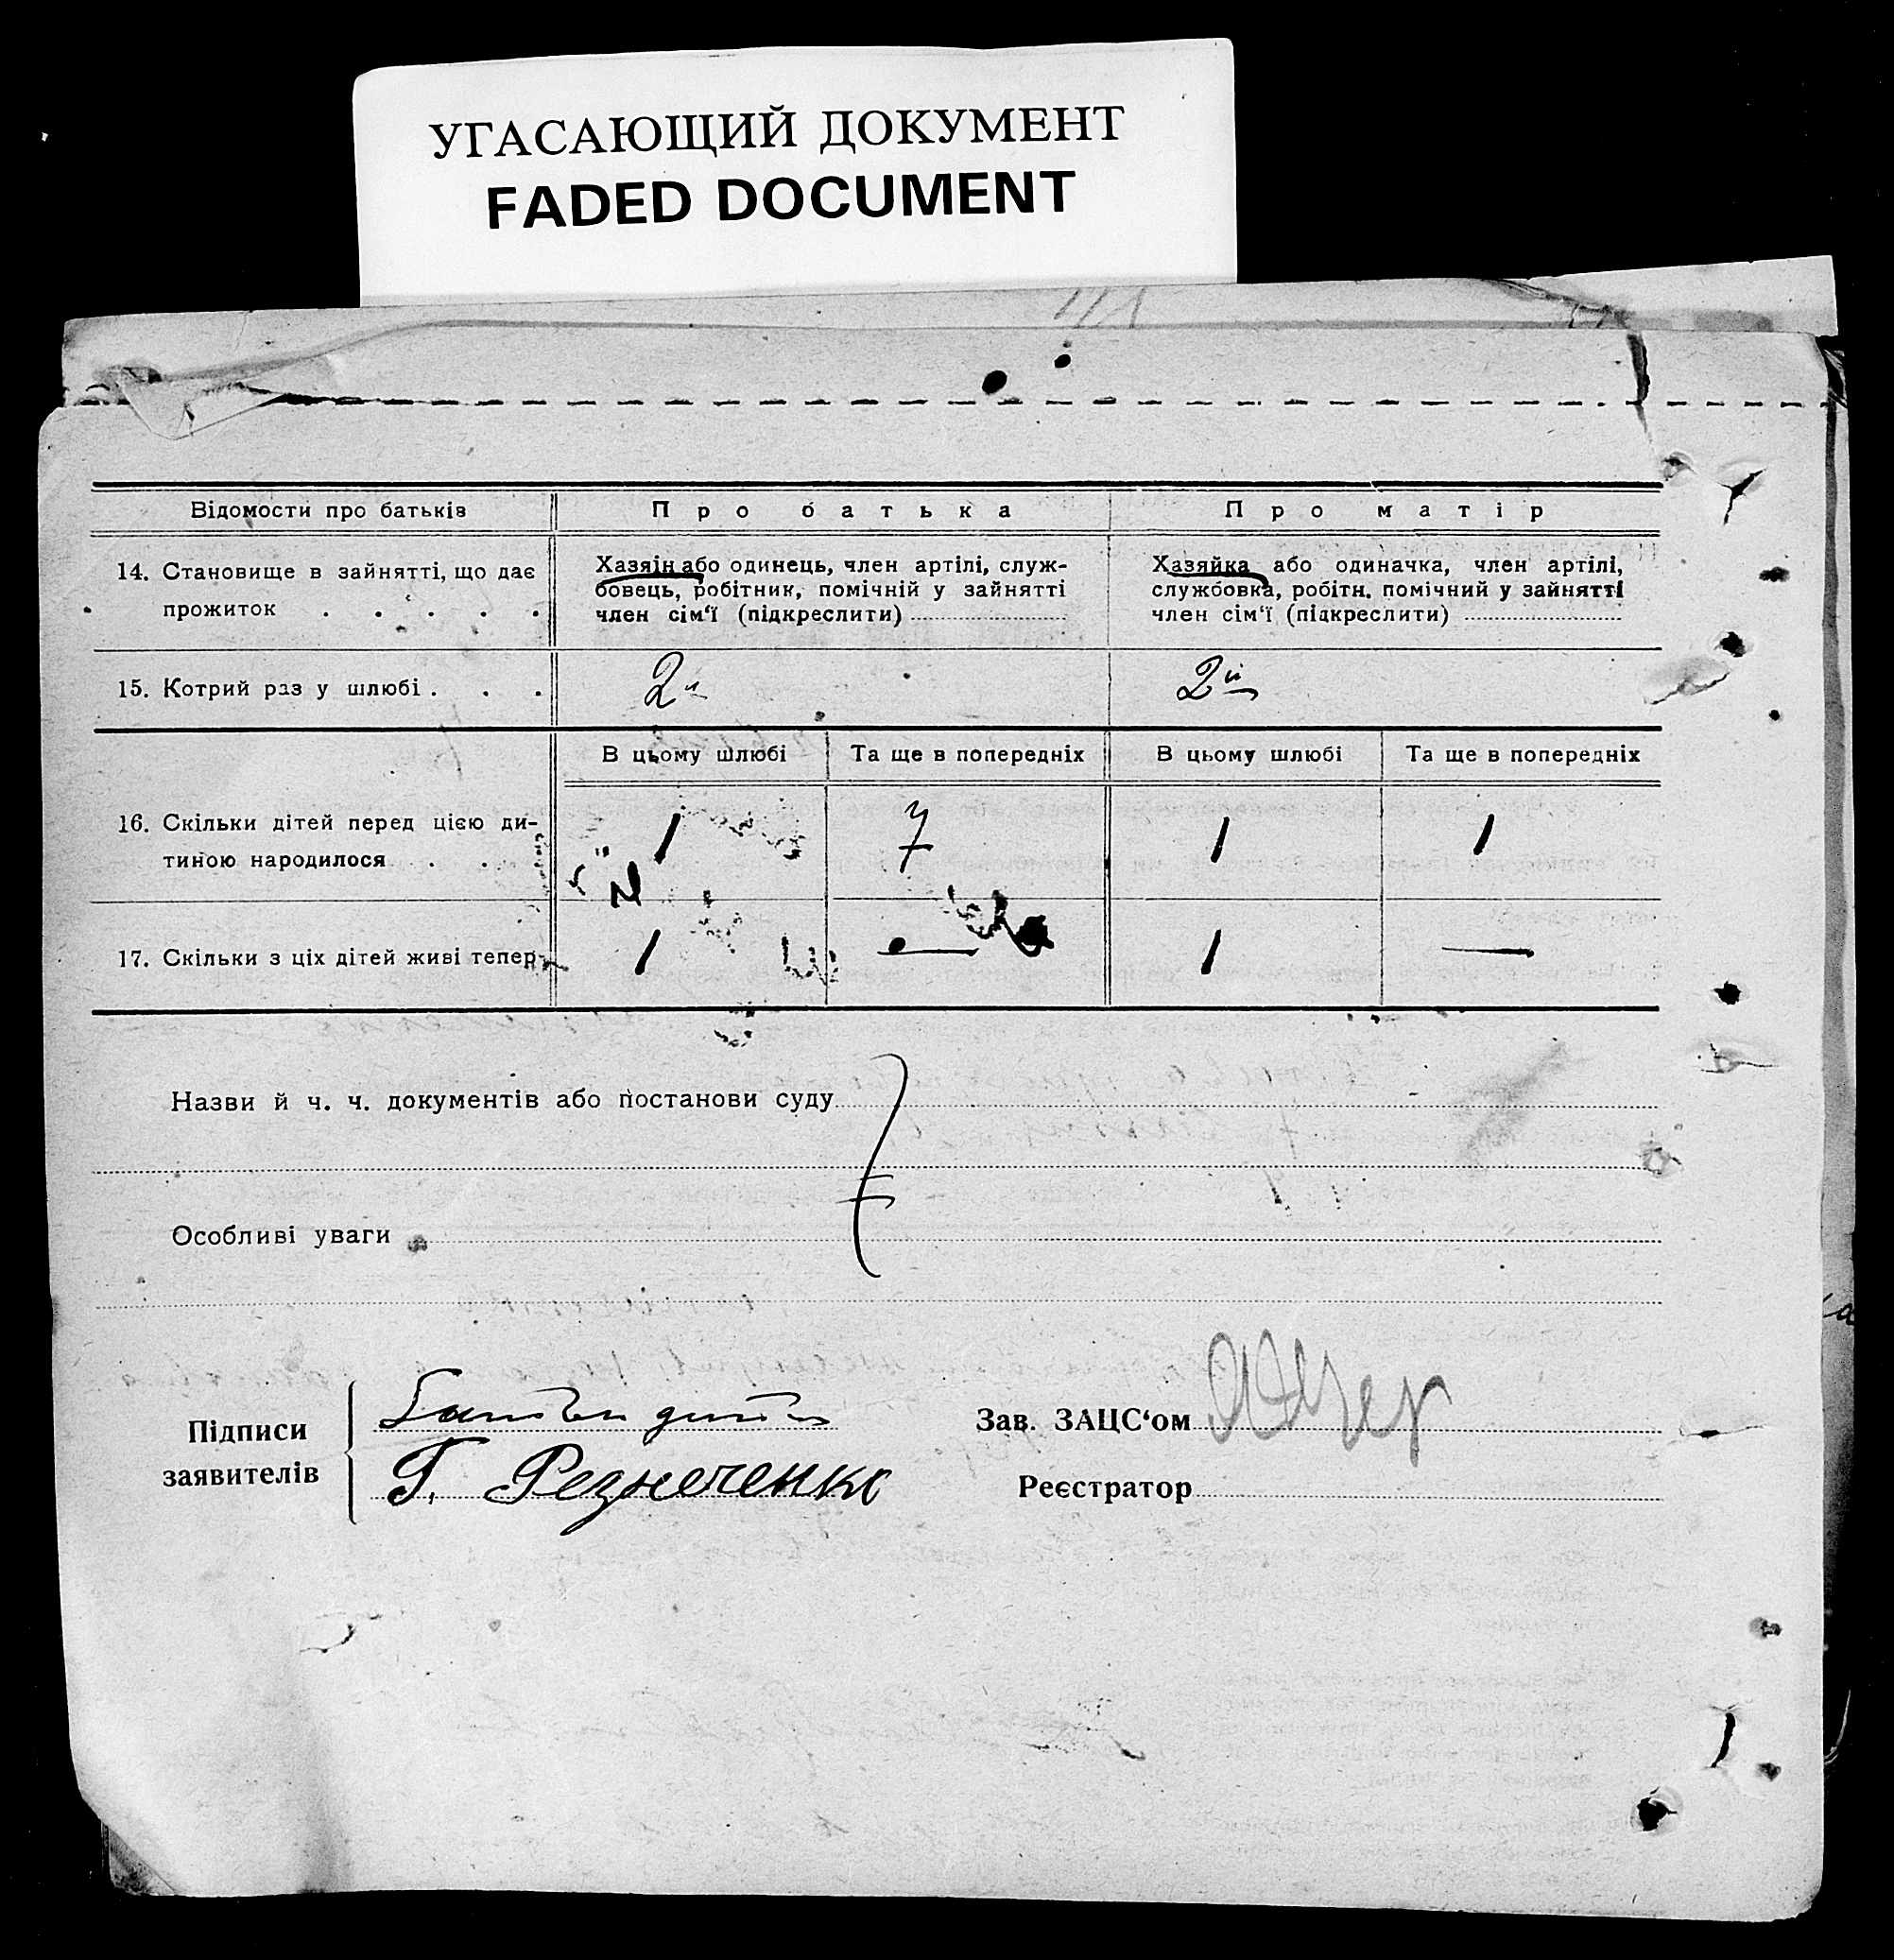 УГАСАЮЩИЙ ДОКУМЕНТ
FADED DOCUMENT
Відомости про батьків
Про батька
Про матір
14. Становище в зайнятті, що дає
прожиток . . . . .
Хазяін або одинець, член артілі, служ-
бовець, робітник, помічній у зайнятті
член сім'ї (підкреслити)
Хазяйка або одиначка, член артілі,
службовка, робітн. помічний у зайнятті
член сім'ї (підкреслити)
15. Котрий раз у шлюбі . . .
2й
2й
В цьому шлюбі
Та ще в попередніх
В цьому шлюбі
Та ще в попередніх
16. Скільки дітей перед цією ди-
тиною народилося . . .
1
7
1
1
17. Скільки з ціх дітей живі тепер
1
—
1
—
Назви й ч. ч. документів або постанови суду
Особливі уваги
Підписи
заявителів
Г. Резнеченко
Зав. ЗАЦС'ом
Реєстратор